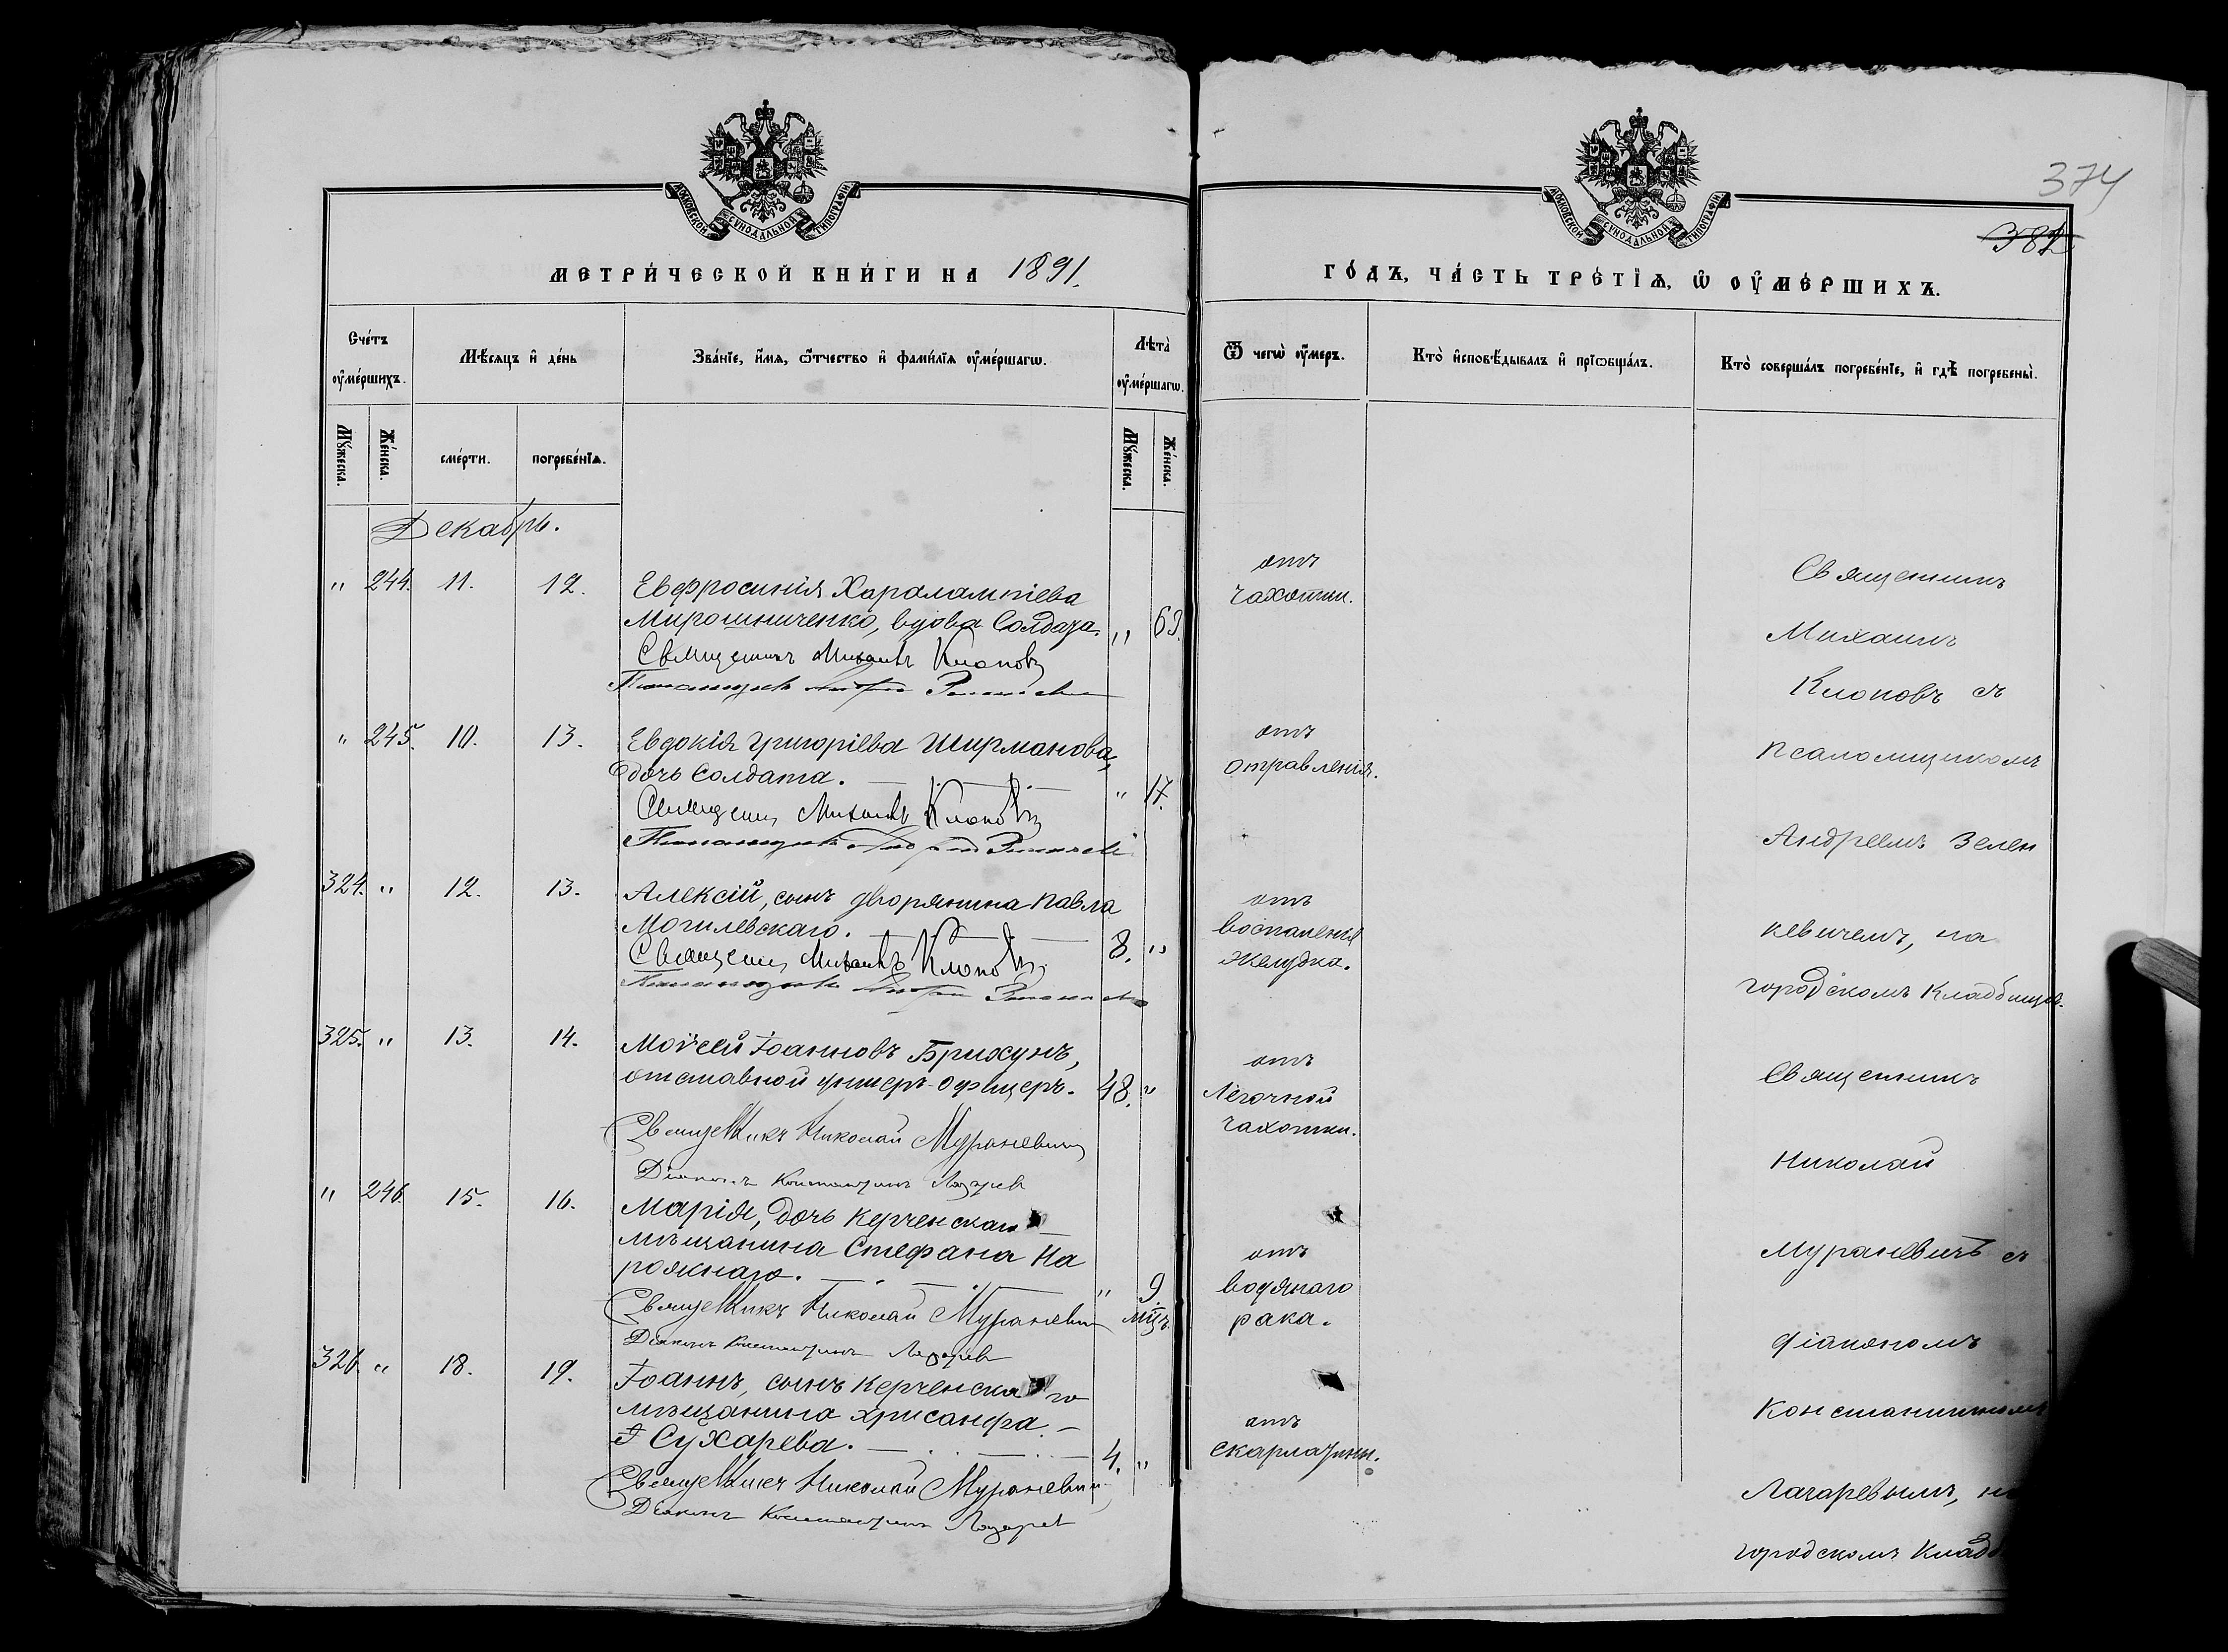 МОСКОВСКОЙ СѴНОДАЛЬНОЙ ТИПОГРАФІИ
МЕТРИ́ЧЕСКОЙ КНИ́ГИ НА 1891.
Счétъ
ᲂу҆ме́ршихъ.
Мѣ́сяцъ и҆ де́нь
Зва́нїе, и҆́мя, ѻ҆́тчество и҆ фами́лїя ᲂу҆ме́ршагѡ.
Лѣта̀
ᲂу҆ме́ршагѡ.
Мꙋ́жеска.
Же́нска.
сме́рти.
погребе́нїѧ.
Мꙋ́жеска.
Же́нска.
Декабрь.
" 244. 11. 12. Евфросинія Харалампіева
Мирошниченко, вдова Солдата. " 63.
Священникъ Михаилъ Клоповъ
Псаломщикъ Андрей Зеленкевичъ
" 245. 10. 13. Евдокія Григоріева Ширманова,
дочь Солдата. " 17.
Священникъ Михаилъ Клоповъ
Псаломщикъ Андрей Зеленкевичъ
324. " 12. 13. Алексій, сынъ дворянина Павла
Могилевскаго. 8. "
Священникъ Михаилъ Клоповъ
Псаломщикъ Андрей Зеленкевичъ
325. " 13. 14. Моѵсей Іоанновъ Брихунъ,
отставной унтеръ-офицеръ. 48. "
Священникъ Николай Мураневичъ
Діаконъ Константинъ Лазарев
" 246. 15. 16. Марія, дочь керченскаго
мѣщанина Стефана На
рожнаго. " 9.
мцъ.
Священникъ Николай Мураневичъ
Діаконъ Константинъ Лазарев
326. " 18. 19. Іоаннъ, сынъ керченскаго
мѣщанина Хрисанфа
Сухарева. 4. "
Священникъ Николай Мураневичъ
Діаконъ Константинъ Лазарев
374
382
МОСКОВСКОЙ СѴНОДАЛЬНОЙ ТИПОГРАФІИ
ГО́ДЪ, ЧА́СТЬ ТРЕ́ТЇѦ, Ѡ҆ ОУ҆МЕ́РШИХЪ.
Ѿ чегѡ̀ ᲂу҆́меръ.
Кто̀ и҆сповѣ́дывалъ и҆ прїѡбща́лъ.
Кто̀ соверша́лъ погребе́нїе, и҆ гдѣ̀ погребены̀.
отъ
чахотки.
отъ
отравленія.
отъ
воспаленія
желудка.
отъ
Легочной
чахотки.
отъ
водянаго
рака.
отъ
скарлатины.
Священникъ
Михаилъ
Клоповъ съ
псаломщикомъ
Андреемъ Зелен
кевичемъ, на
городскомъ кладбищѣ.
Священникъ
Николай
Мураневичъ съ
діакономъ
Константиномъ
Лазаревымъ, на
городскомъ кладб